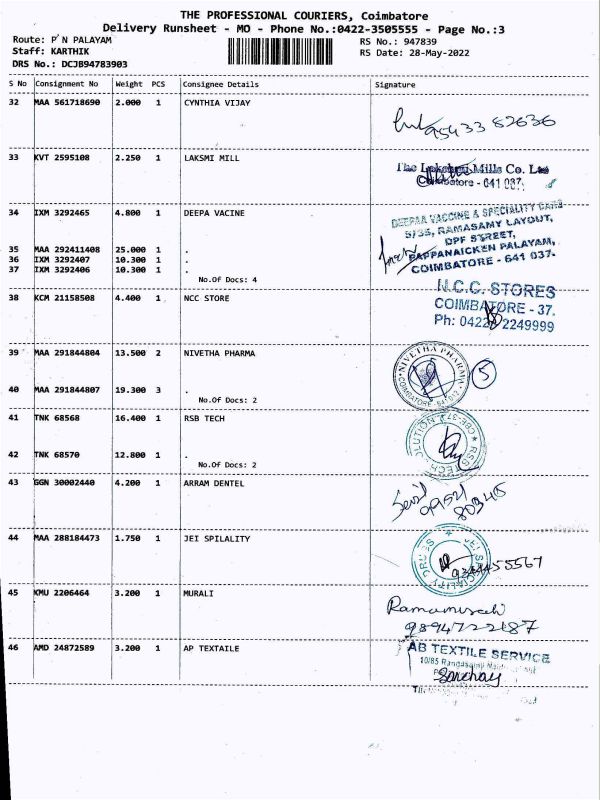 THE PROFESSIONAL COURIERS, Coimbatore
Delivery Runsheet - MO - Phone No.:0422-3505555 - Page No.:3
Route: P N PALAYAM RS No.: 947839
Staff: KARTHIK RS Date: 28-May-2022
DRS No.: DCJB94783903
S No Consignment No Weight PCS Consignee Details Signature
32 MAA 561718690 2.000 1 CYNTHIA VIJAY
33 KVT 2595108 2.250 1 LAKSMI MILL
The Lakshmi Mills Co. Ltd
Coimbatore - 641 037.
34 IXM 3292465 4.800 1 DEEPA VACINE
DEEPAA VACCINE & SPECIALITY CARE
5/35, RAMASAMY LAYOUT,
DPF STREET,
PAPPANAICKEN PALAYAM,
COIMBATORE - 641 037.
35 MAA 292411408 25.000 1 .
36 IXM 3292407 10.300 1 .
37 IXM 3292406 10.300 1 .
No.Of Docs: 4
38 KCM 21158508 4.400 1 NCC STORE
N.C.C. STORES
COIMBATORE - 37.
Ph: 0422 2249999
39 MAA 291844804 13.500 2 NIVETHA PHARMA
NIVETHA PHARMA
COIMBATORE
5
40 MAA 291844807 19.300 3 .
No.Of Docs: 2
41 TNK 68568 16.400 1 RSB TECH
42 TNK 68570 12.800 1 .
No.Of Docs: 2
43 GGN 30002440 4.200 1 ARRAM DENTEL
44 MAA 288184473 1.750 1 JEI SPILALITY
JEI SPECIALITY DRUGS
45 KMU 2206464 3.200 1 MURALI
9894722187
46 AMD 24872589 3.200 1 AP TEXTAILE
AB TEXTILE SERVICE